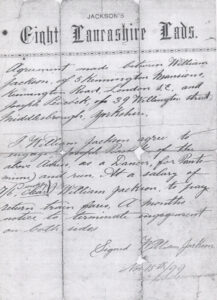 JACKSON'S
Eight Lancashire Lads.
Agreement made between William
Jackson, of 3 Kennington Mansions,
Kennington Road, London S.E. and
Joseph of 39 Wellington Street
Middlesbrough, Yorkshire.
I William Jackson agree to
engage Joseph of the
above address, as a Dancer, for Panto
mime and run. At a salary of
William Jackson, to pay
return train fares. A months
notice to terminate engagement
on both sides
Signed William Jackson